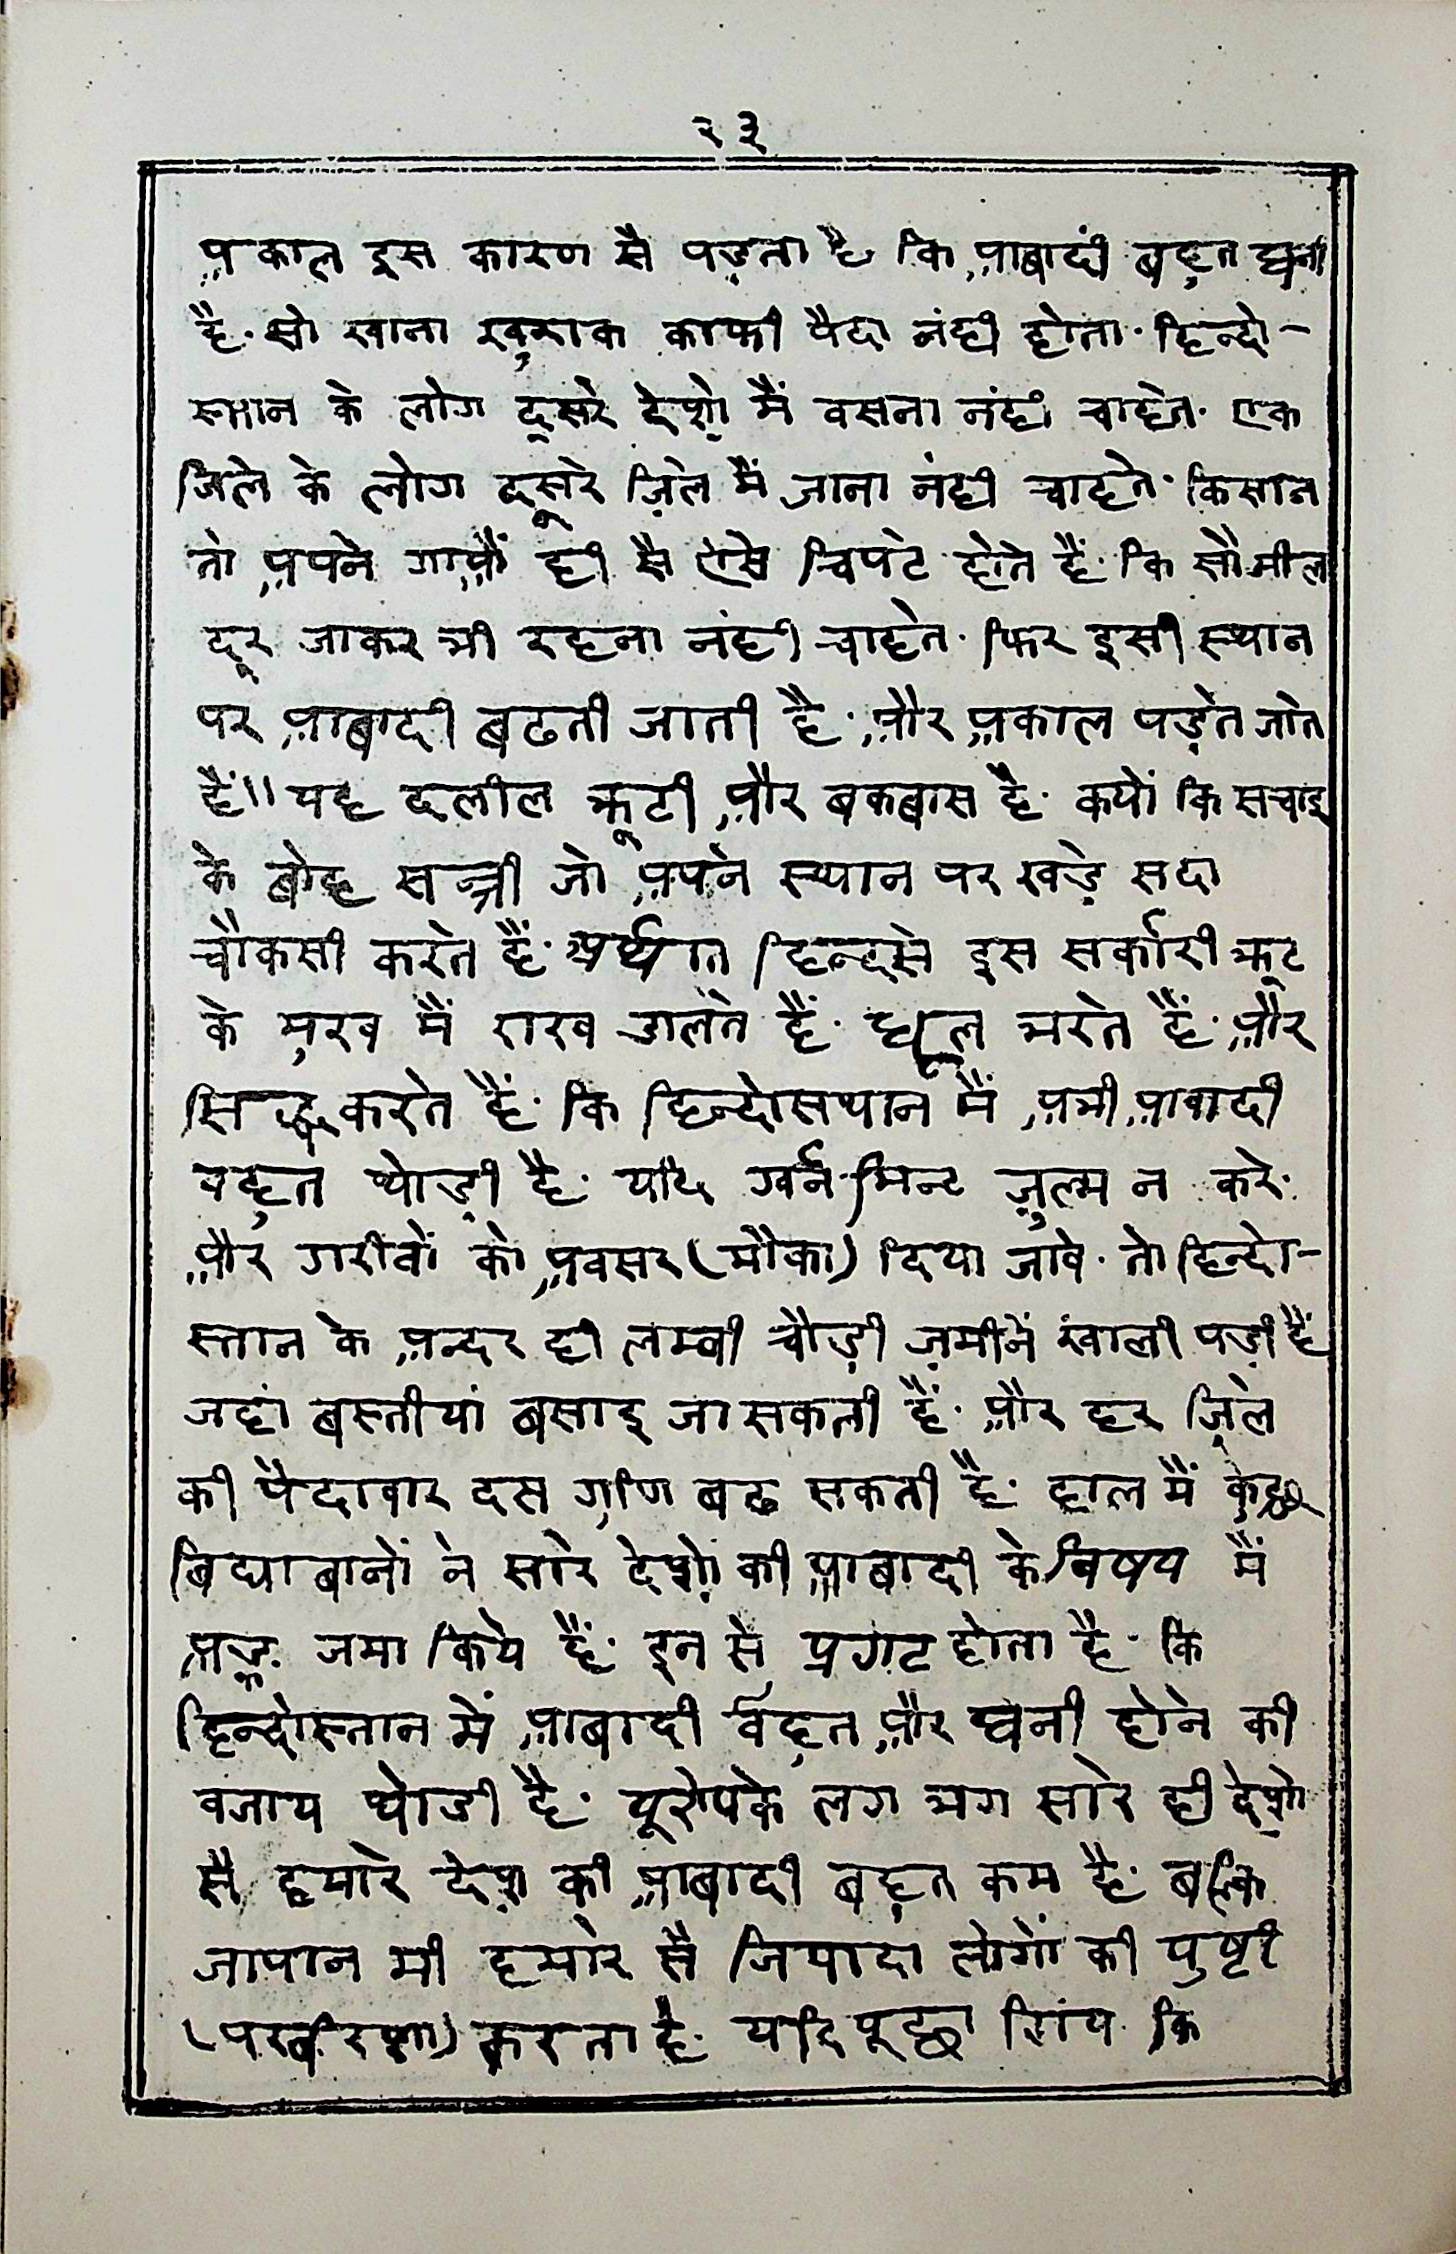 २३
अकाल इस कारण सै पड़ता है कि आबादी बहुत घनी
है. सो खाना खुराक काफी पैदा नंही होता. हिन्दो-
स्तान के लोग दूसरे देशो मैं वसना नंही चाहेत. एक
जिले के लोग दूसरे ज़िले मैं जाना नंही चाहते. किसान
तो अपने गाओं ही सै ऐसे चिपटे होते हैं. कि सौ मील
दूर जाकर भी रहना नंही चाहेत. फिर इसी स्थान
पर आबादी बढती जाती है. और अकाल पड़ेत जोत
हैं" यह दलील झूटी और बकबास है. कयों कि सचाइ
के बोह सन्त्री जो अपने स्थान पर खड़े सदा
चौकसी करेत हैं. अर्थात हिन्दसे इस सर्कारी झूट
के मुख मैं राख डालेत हैं. धूल भरेत हैं. और
सिद्ध करेत हैं. कि हिन्दोसथान मैं अभी आवादी
वहुत थोड़ी है. यदि गवर्नमिन्ट ज़ुल्म न करे.
और गरीवों को अवसर (मौका) दिया जावे. तो हिन्दो-
स्तान के अन्दर ही लम्वी चौड़ी ज़मीनें खाली पड़ी हैं
जहां बस्तीयां बसाइ जा सकती हैं. और हर ज़िले
की पैदावार दस गुणि बढ सकती है. हाल मैं कुछ
बिद्याबानों ने सारे देशों की आबादी के विषय मैं
अङ्क जमा किये हैं. इन से प्रगट होता है. कि
हिन्दोस्तान में आबादी वहुत और घनी होने की
वजाय थोडी है. यूरोपके लग भग सारे ही देशो
सै हमारे देश की आबादी बहुत कम है. बल्कि
जापान भी हमारे सै जियादा लोगों की पुष्टी
(परवरिश) करता है. यदि पूछा जाय कि